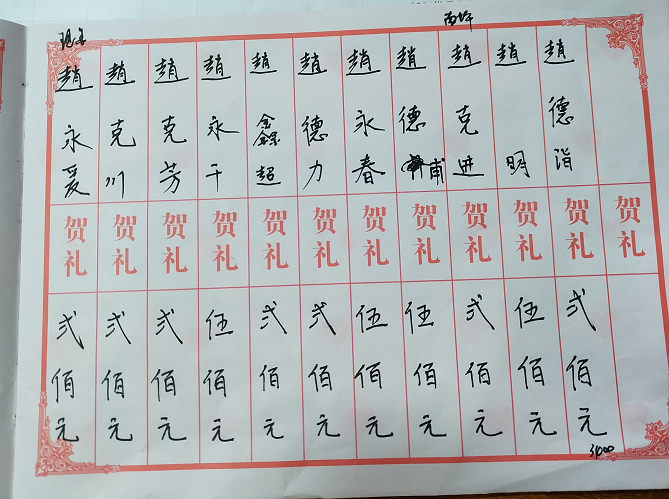 现金
趙永爱 贺礼 弍佰元
趙克川 贺礼 弍佰元
趙克芳 贺礼 弍佰元
趙永千 贺礼 伍佰元
趙鑫超 贺礼 弍佰元
趙德力 贺礼 弍佰元
趙永春 贺礼 伍佰元
趙德甫 贺礼 伍佰元
趙克进 贺礼 弍佰元
趙明 贺礼 伍佰元
趙德 贺礼 弍佰元
贺礼
3400